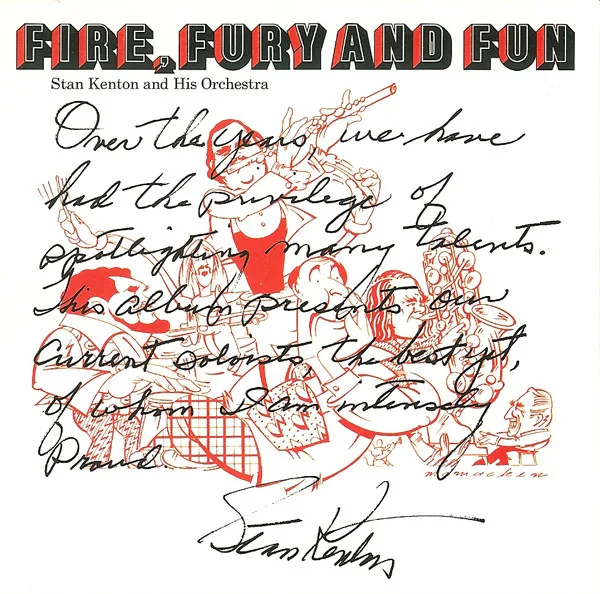 FIRE, FURY AND FUN
Stan Kenton and His Orchestra
Over the years, we have
had the privilege of
spotlighting many talents.
This album presents our
current soloists, the best yet,
of whom I am intensely
proud
Stan Kenton